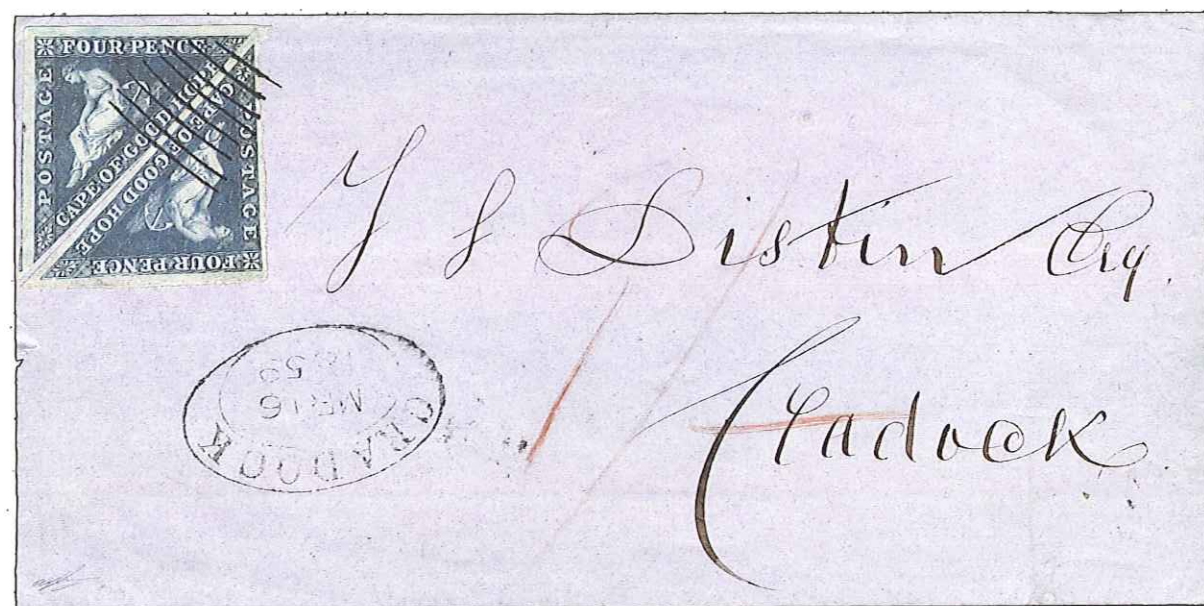 FOUR PENCE
POSTAGE
CAPE OF GOOD HOPE
CAPE OF GOOD HOPE
POSTAGE
FOUR PENCE
J S Distin Esq.
Cradock
CRADOCK
MR 16